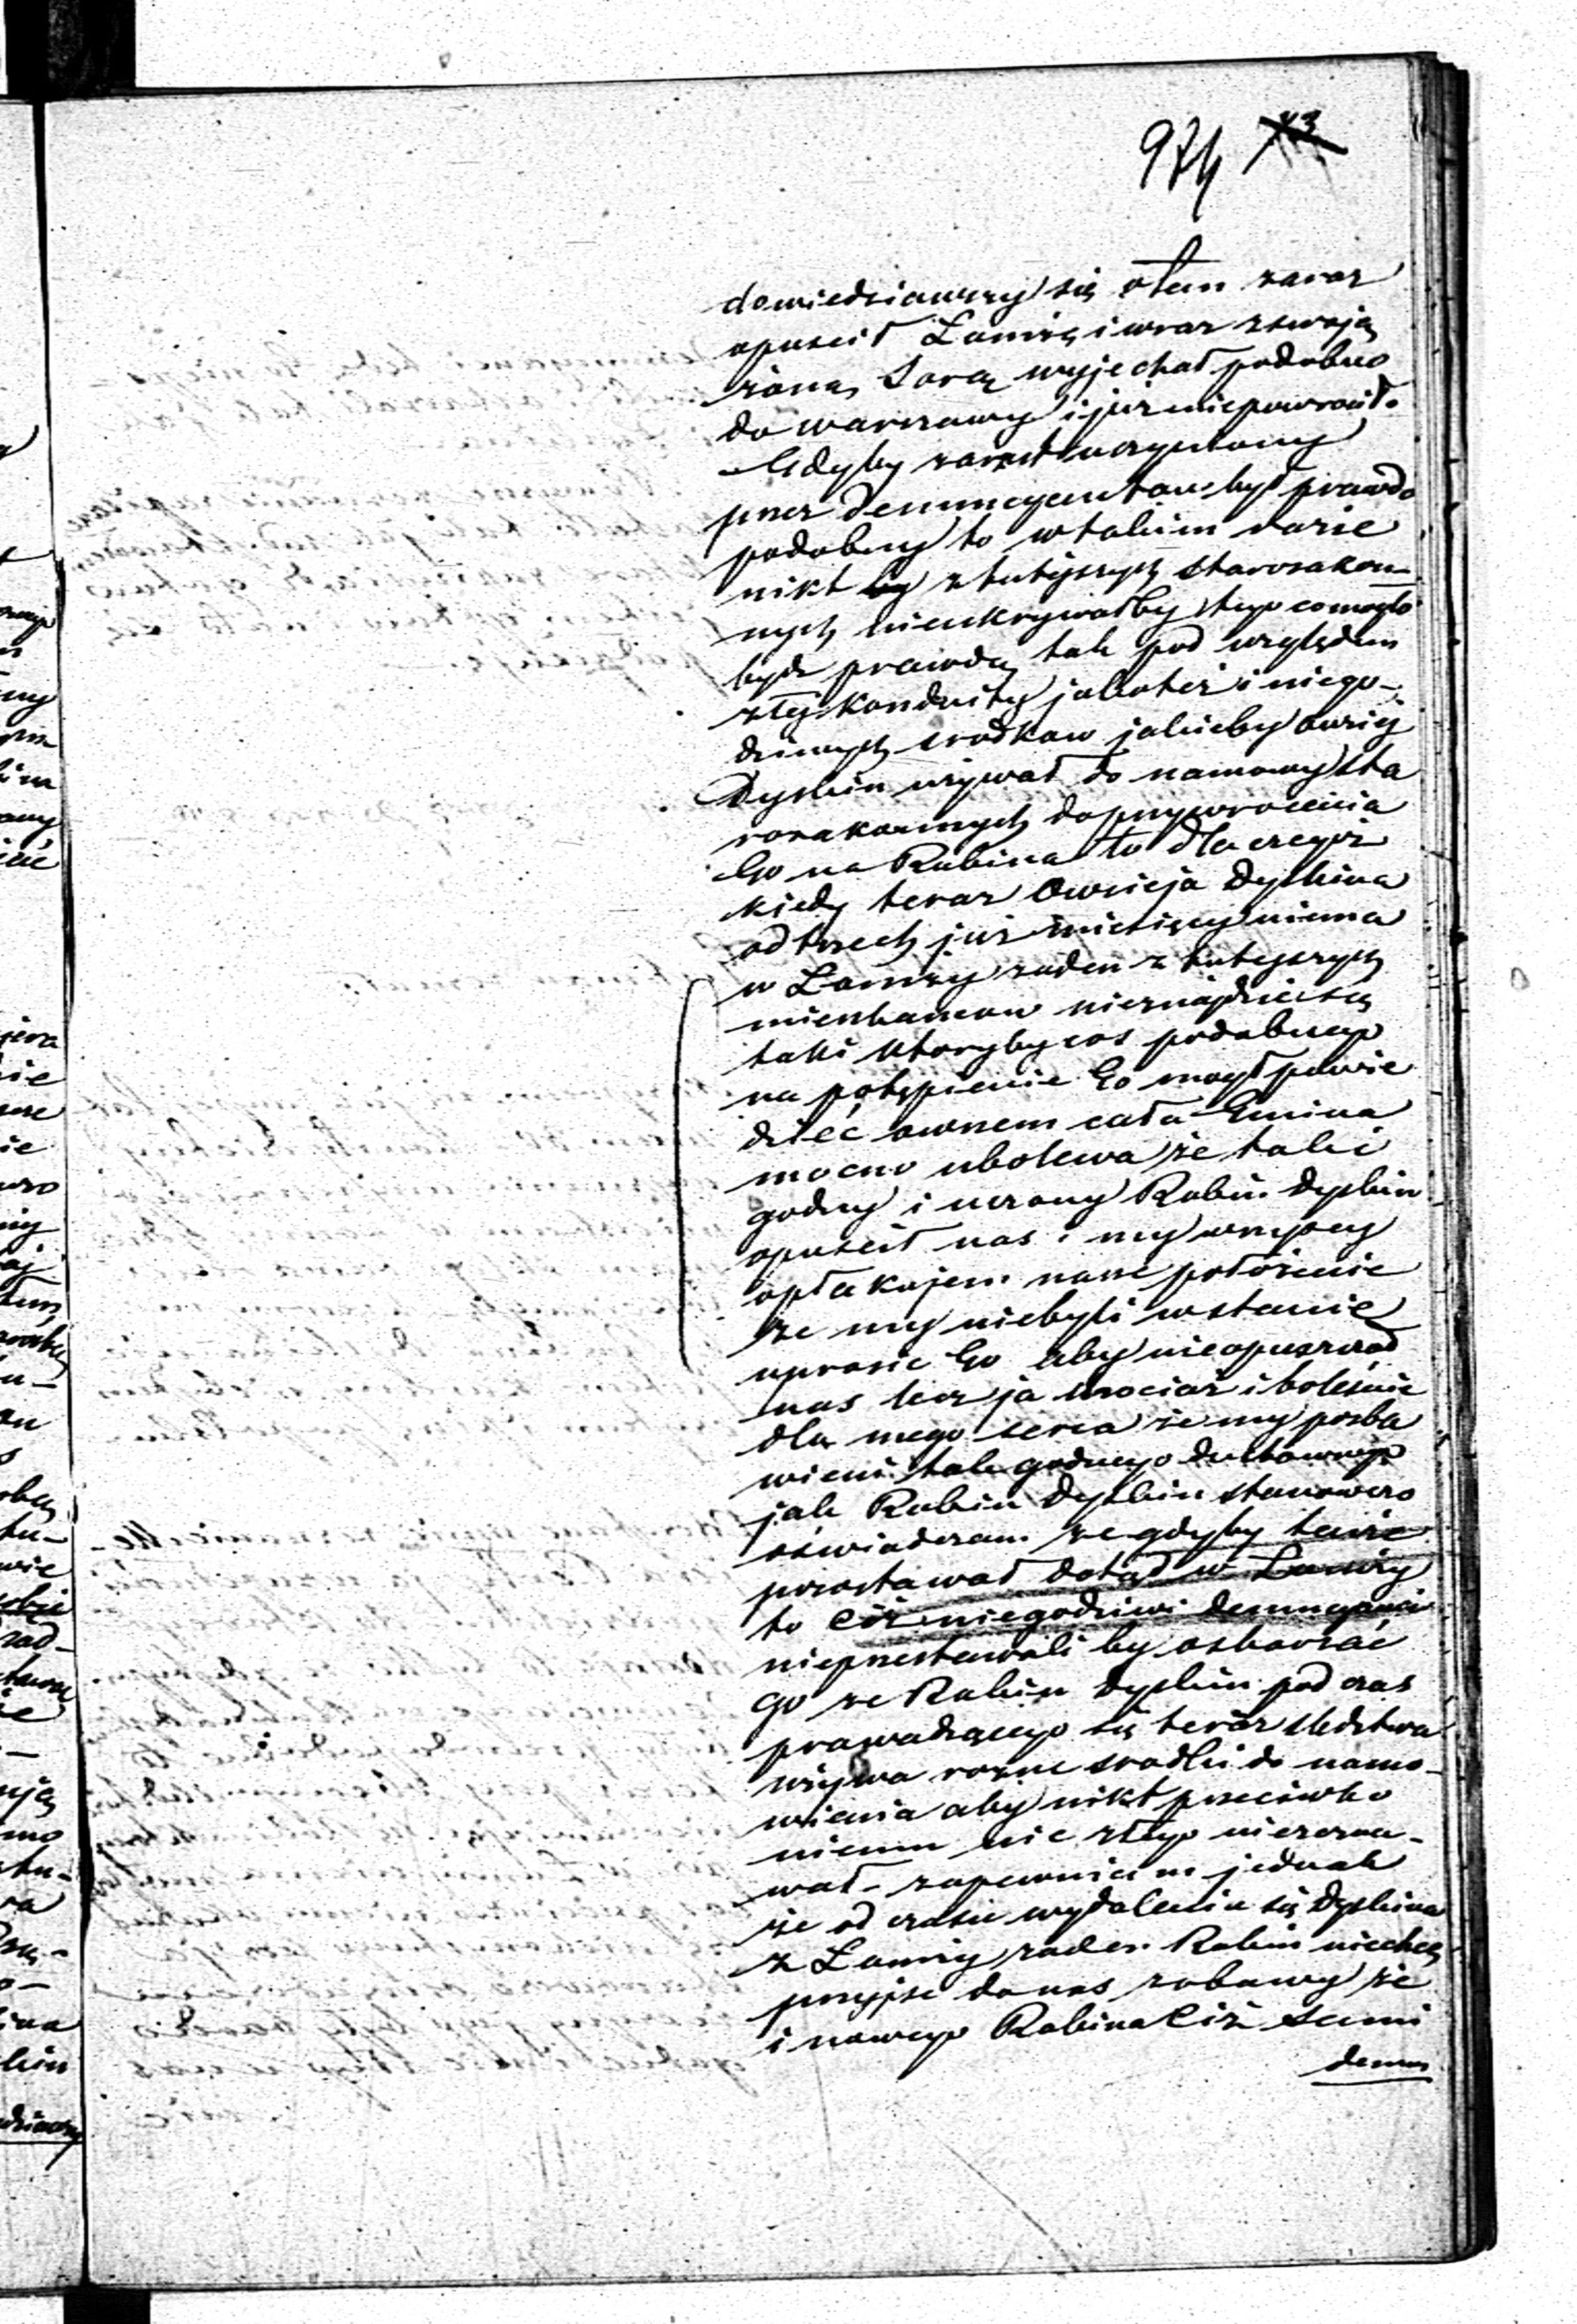 974 43
dowiedziawszy się otem zaraz
opuscił Łomżę i wraz zswoją
żoną Sorą wyjechał podobno
do warszawy i już niepowrocił.
Gdyby zarzut uczyniony
przez Denuncyantow był prawdo
podobny to wtakim razie
nikt by z tutejszych starozakon-
nych nieukrywałby tego co mogło
bydz prawdą tak pod względem
złej konduity jakoteż i niego-
dziwych srodkow jakieby owziej
Dyskin używał do namowy sta
rozakonnych do przywrocenia
Go na Rabina to dla czegoż
kiedy teraz Owzieja Dyskina
od trzech już miesięcy niema
w Łomży żaden z tutejszych
mieszkancow nieznajdzie się
taki ktoryby cos podobnego
na potępienie Go mogł powie
dzieć owszem cała Gmina
mocno ubolewa że taki
godny i uczony Rabin Dyskin
opuscił nas i my wszyscy
opłakujem nasze położenie
że my niebyli wstanie
uprosic Go aby nieopuszczał
nas lecz ja chociaż i boleśnie
dla mego serca że my pozba
wieni tak godnego duchownego
jak Rabin Dyskin stanowczo
oświadczam że gdyby tenże
pozostawał dotąd w Łomży
to Ciż niegodziwi denuncyanci
nieprzestawali by oskarżać
go że Rabin Dyskin pod czas
prowadzącego się teraz sledztwa
używa rożne srodki do namo-
wienia aby nikt przeciwko
niemu nic złego niezezna-
wał - zapewniam jednak
że od czasu wydalenia się Dyskina
z Łomży żaden Rabin niechcę
przyjsc do nas zobawy że
i nowego Rabina Ciż sami
denun